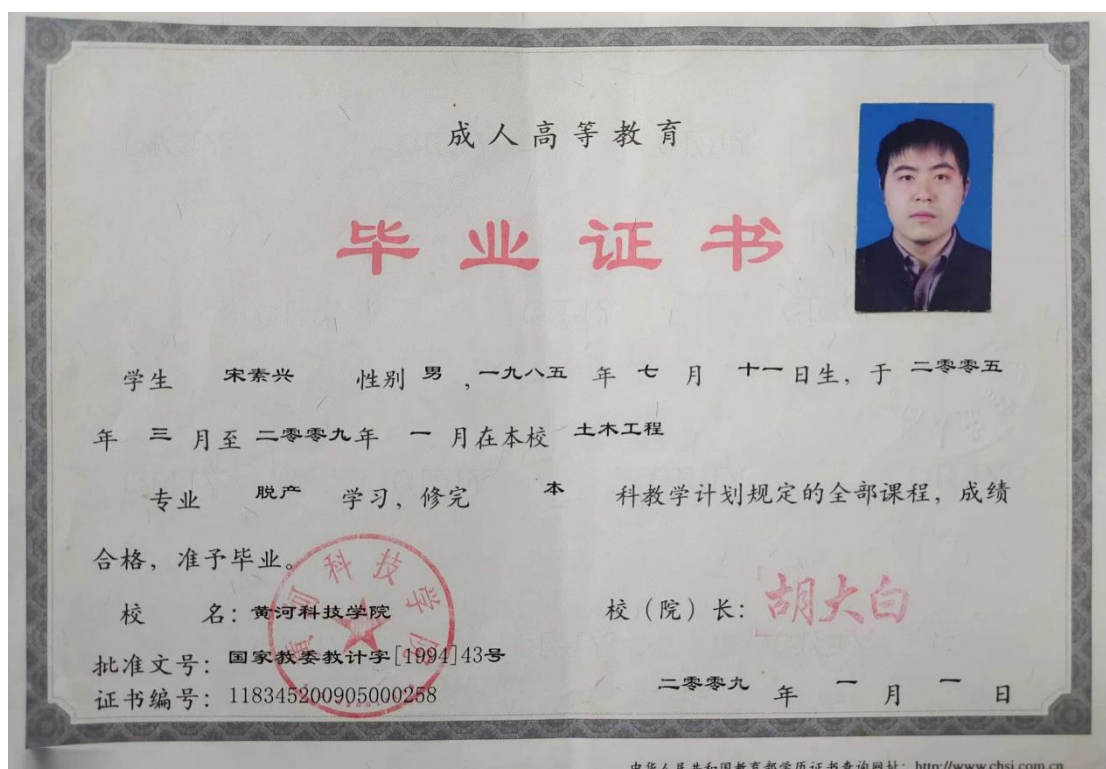 成人高等教育
毕业证书
学生 宋素兴 性别 男 ,一九八五 年 七 月 十一日生, 于 二零零五
年 三 月至 二零零九年 一 月在本校 土木工程
专业 脱产 学习, 修完 本 科教学计划规定的全部课程, 成绩
合格, 准予毕业。
黄河科技学院
校 名: 黄河科技学院 校(院)长: 胡大白
批准文号: 国家教委教计字[1994]43号
证书编号: 118345200905000258 二零零九 年 一 月 一 日
中华人民共和国教育部学历证书查询网址: http://www.chsi.com.cn